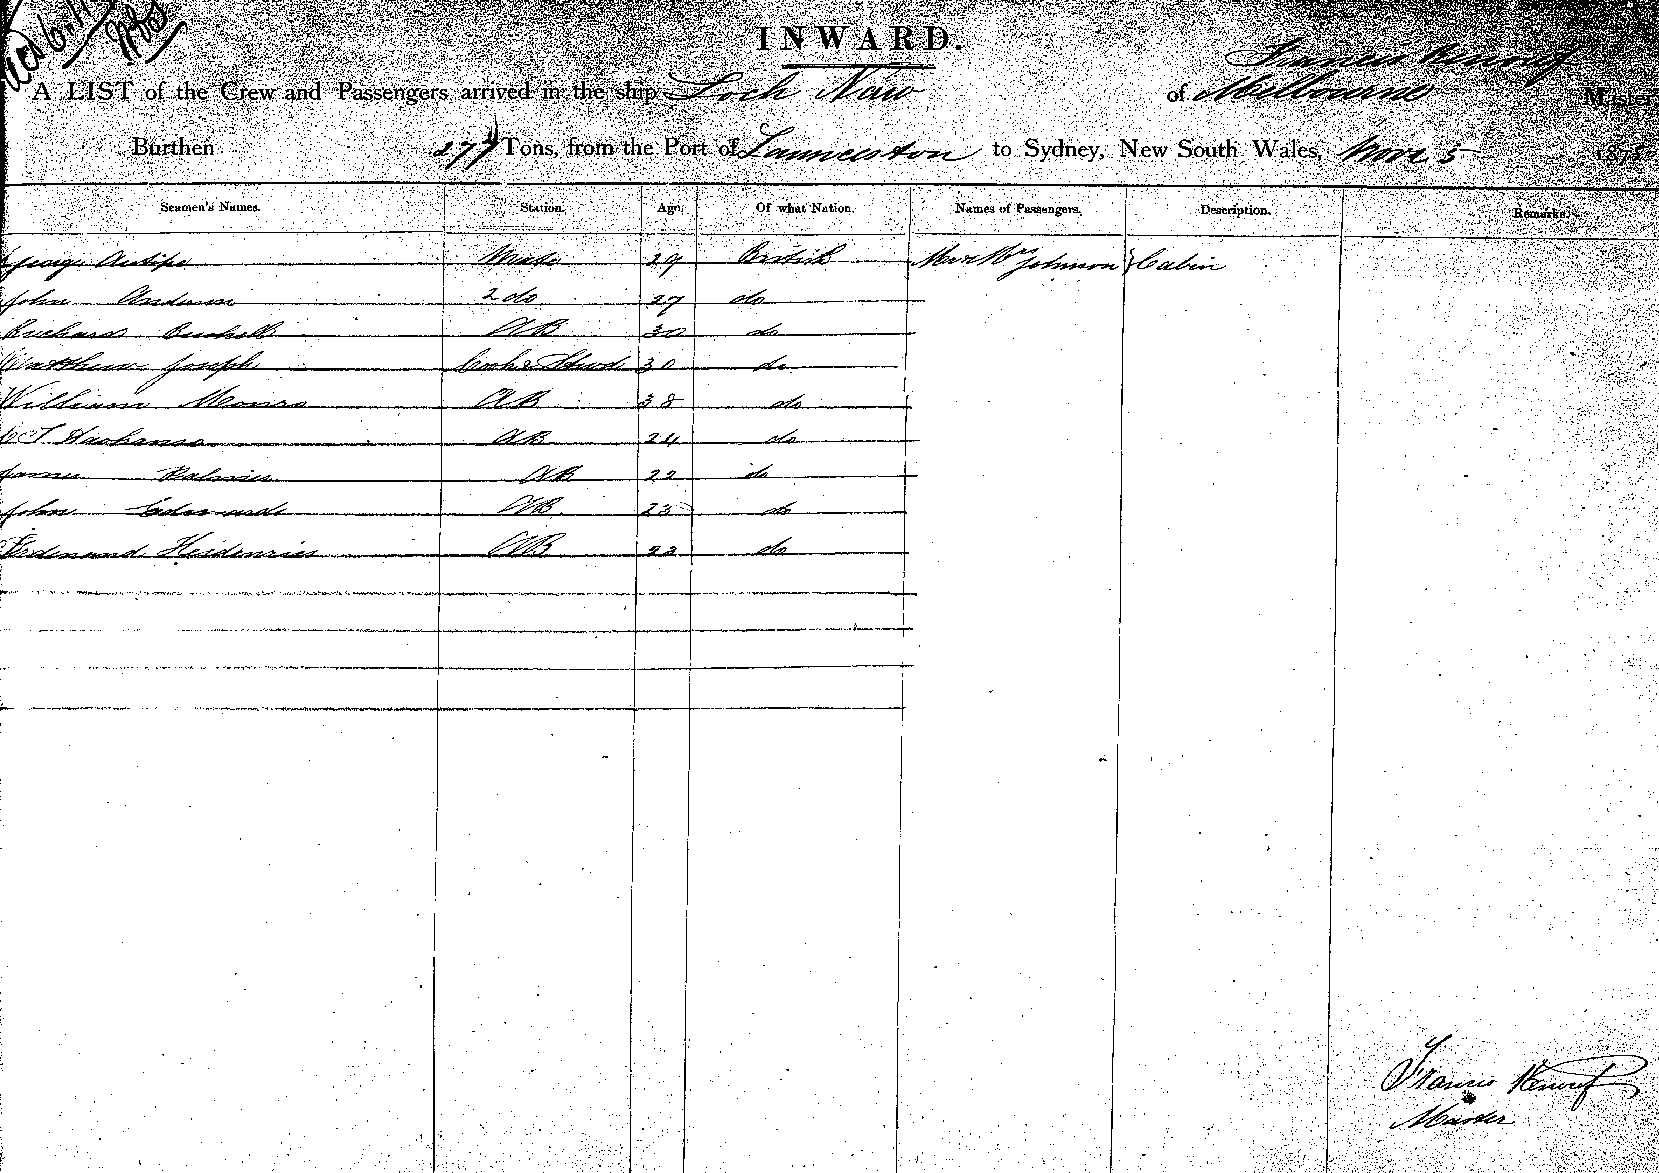 INWARD.
A LIST of the Crew and Passengers arrived in the ship Loch Naw of Melbourne Francis Master
Burthen 277 Tons, from the Port of Launceston to Sydney, New South Wales, Nove 5 187
Seamen's Names. Station. Age. Of what Nation. Names of Passengers. Description. Remarks.
George Mate 29 British Mr & Mrs Johnson } Cabin
John Anderson 2 do 27 do
Richard Bushell AB 30 do
Matthew Joseph Cook & Stewd 30 do
William Monro AB 38 do
AB 24 do
James AB 22 do
John Edwards AB 23 do
Ferdenand Heidenries AB 22 do
Francis
Master